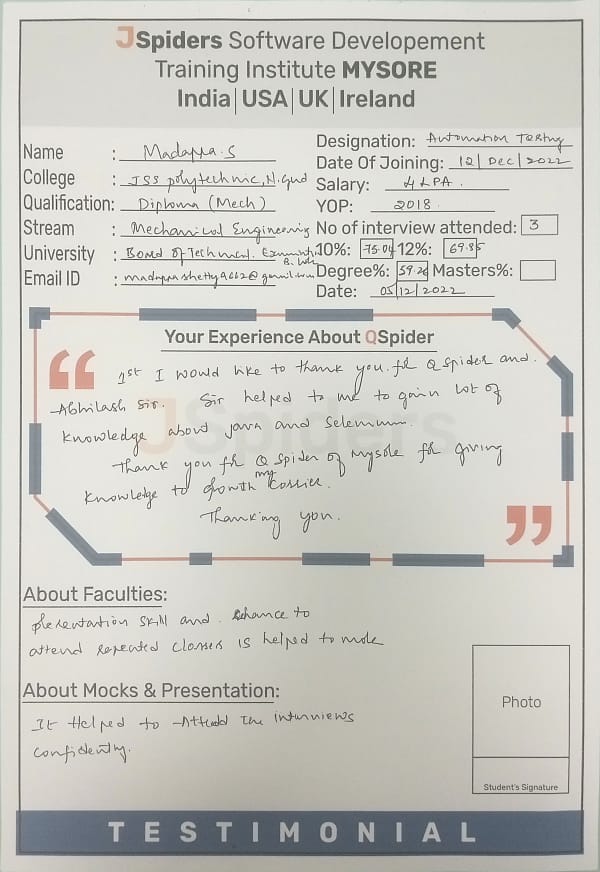 JSpiders Software Developement
Training Institute MYSORE
India|USA|UK|Ireland
Name : Madappa.S
College : JSS polytechnic, N.Gud
Qualification: Diploma (Mech)
Stream : Mechanical Engineering
University : Board of Technical. Examination
Email ID :
Designation: Automation Testing
Date Of Joining: 12/Dec/2022
Salary: 4 LPA.
YOP: 2018
No of interview attended: 3
10%: 75.04 12%: 69.85
Degree%: 59.26 Masters%:
Date: 05/12/2022
Your Experience About QSpider
1st I would like to thank you. for Q Spider and.
Abhilash Sir. Sir helped to me to gain lot of
Knowledge about java and Selenium.
Thank you for Q Spider of Mysore for giving
Knowledge to Growth my Carrier.
Thanking you.
JSpiders
About Faculties:
presentation skill and. chance to
attend repeated classes is helped to more
About Mocks & Presentation:
It Helped to Attend the interviews
confidently.
Photo
Student's Signature
TESTIMONIAL